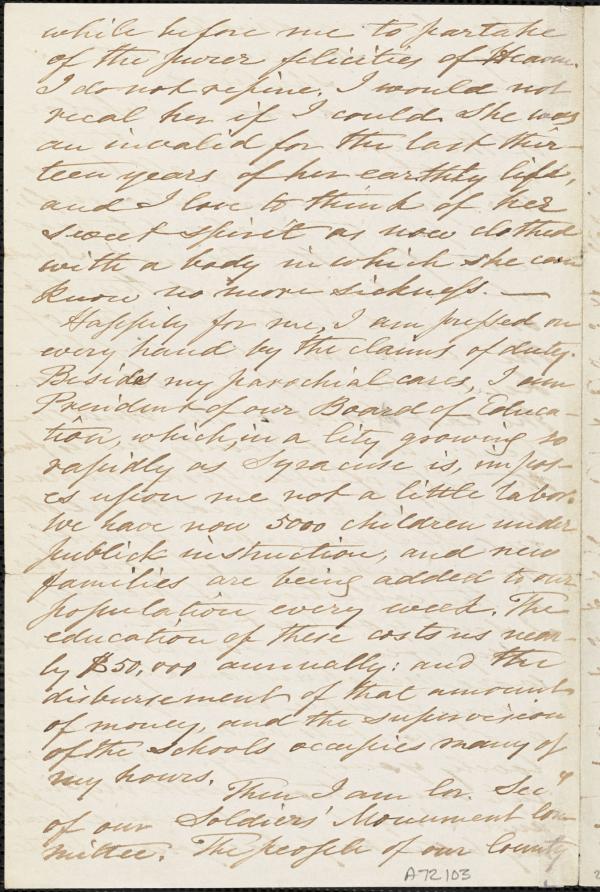 while before me to partake
of the purer felicities of Heaven.
I do not repine. I would not
recal her if I could. She was
an invalid for the last thir-
teen years of her earthly life,
and I love to think of her
sweet spirit as now clothed
with a body in which she can
know no more sickness. —
Happily for me, I am pressed on
every hand by the claims of duty.
Besides my parochial cares, I am
President of our Board of Educa-
tion, which, in a City growing so
rapidly as Syracuse is, impos-
es upon me not a little labor.
We have now 5000 children under
publick instruction, and new
families are being added to our
population every week. The
education of these costs us near-
ly $50,000 annually: and the
disbursement of that amount
of money, and the supervision
of the Schools occupies many of
my hours.
Then I am Cor. Secy
of our Soldiers' Monument Com
mittee. The people of our County
A72103